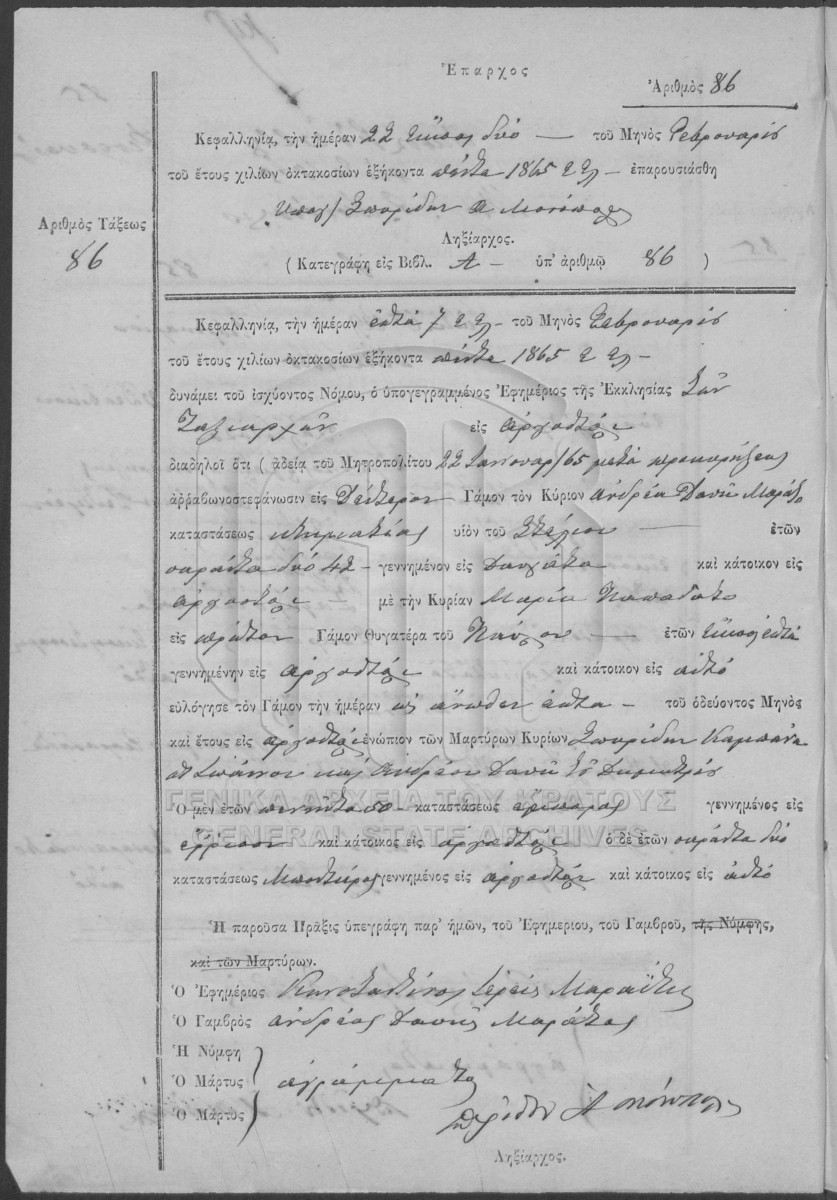 Ἔπαρχος
Ἀριθμὸς 86
Κεφαλληνίᾳ, τὴν ἡμέραν 22 εἴκοσι δύο — τοῦ Μηνὸς Φεβρουαρίου
τοῦ ἔτους χιλίων ὀκτακοσίων ἑξήκοντα πέντε 1865 — ἐπαρουσιάσθη
Σπυρίδων
Ληξίαρχος.
Ἀριθμὸς Τάξεως
86
( Κατεγράφη εἰς Βιβλ. Α — ὑπ' ἀριθμῷ 86 )
Κεφαλληνίᾳ, τὴν ἡμέραν ἑπτά 7 — τοῦ Μηνὸς Φεβρουαρίου
τοῦ ἔτους χιλίων ὀκτακοσίων ἑξήκοντα πέντε 1865 —
δυνάμει τοῦ ἰσχύοντος Νόμου, ὁ ὑπογεγραμμένος Ἐφημέριος τῆς Ἐκκλησίας τῶν
Ταξιαρχῶν εἰς Ἀργοστόλι
διαδηλοῖ ὅτι ( ἀδείᾳ τοῦ Μητροπολίτου 22 Ἰανουαρ/65 μετά προκηρύξεως
ἀῤῥαβωνοστεφάνωσιν εἰς Δεύτερον Γάμον τὸν Κύριον Ἀνδρέα
καταστάσεως υἱὸν τοῦ — ἐτῶν
σαράντα δύο 42 — γεννημένον εἰς καὶ κάτοικον εἰς
Ἀργοστόλι — μὲ τὴν Κυρίαν Μαρία
εἰς πρῶτον Γάμον Θυγατέρα τοῦ Παύλου — ἐτῶν εἴκοσι ἑπτά
γεννημένην εἰς Ἀργοστόλι καὶ κάτοικον εἰς αὐτό
εὐλόγησε τὸν Γάμον τὴν ἡμέραν ὡς ἄνωθεν ἑπτα — τοῦ ὁδεύοντος Μηνὸς
καὶ ἔτους εἰς Ἀργοστόλι ἐνώπιον τῶν Μαρτύρων Κυρίων Σπυρίδων
Ἰωάννου καὶ Ἀνδρέου
ΓΕΝΙΚΑ ΑΡΧΕΙΑ ΤΟΥ ΚΡΑΤΟΥΣ
Ὁ μὲν ἐτῶν πενήντα 50 — καταστάσεως ἔμπορος γεννημένος εἰς
GENERAL STATE ARCHIVES
καὶ κάτοικος εἰς Ἀργοστόλι ὁ δὲ ἐτῶν σαράντα δύο
καταστάσεως γεννημένος εἰς Ἀργοστόλι καὶ κάτοικος εἰς αὐτό
Ἡ παροῦσα Πρᾶξις ὑπεγράφη παρ' ἡμῶν, τοῦ Ἐφημερίου, τοῦ Γαμβροῦ, τῆς Νύμφης,
καὶ τῶν Μαρτύρων.
Ὁ Ἐφημέριος Κωνσταντίνος Ἱερεύς
Ὁ Γαμβρὸς Ἀνδρέας
Ἡ Νύμφη
Ὁ Μάρτυς ἀγράμματοι
Ὁ Μάρτυς
Ληξίαρχος.